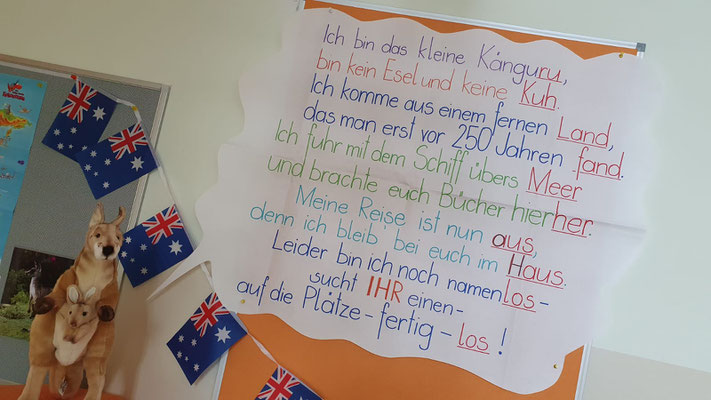 Ich bin das kleine Känguru,
bin kein Esel und keine Kuh.
Ich komme aus einem fernen Land,
das man erst vor 250 Jahren fand.
Ich fuhr mit dem Schiff übers Meer
und brachte euch Bücher hierher.
Meine Reise ist nun aus,
denn ich bleib' bei euch im Haus.
Leider bin ich noch namenlos -
sucht IHR einen -
auf die Plätze - fertig - los!